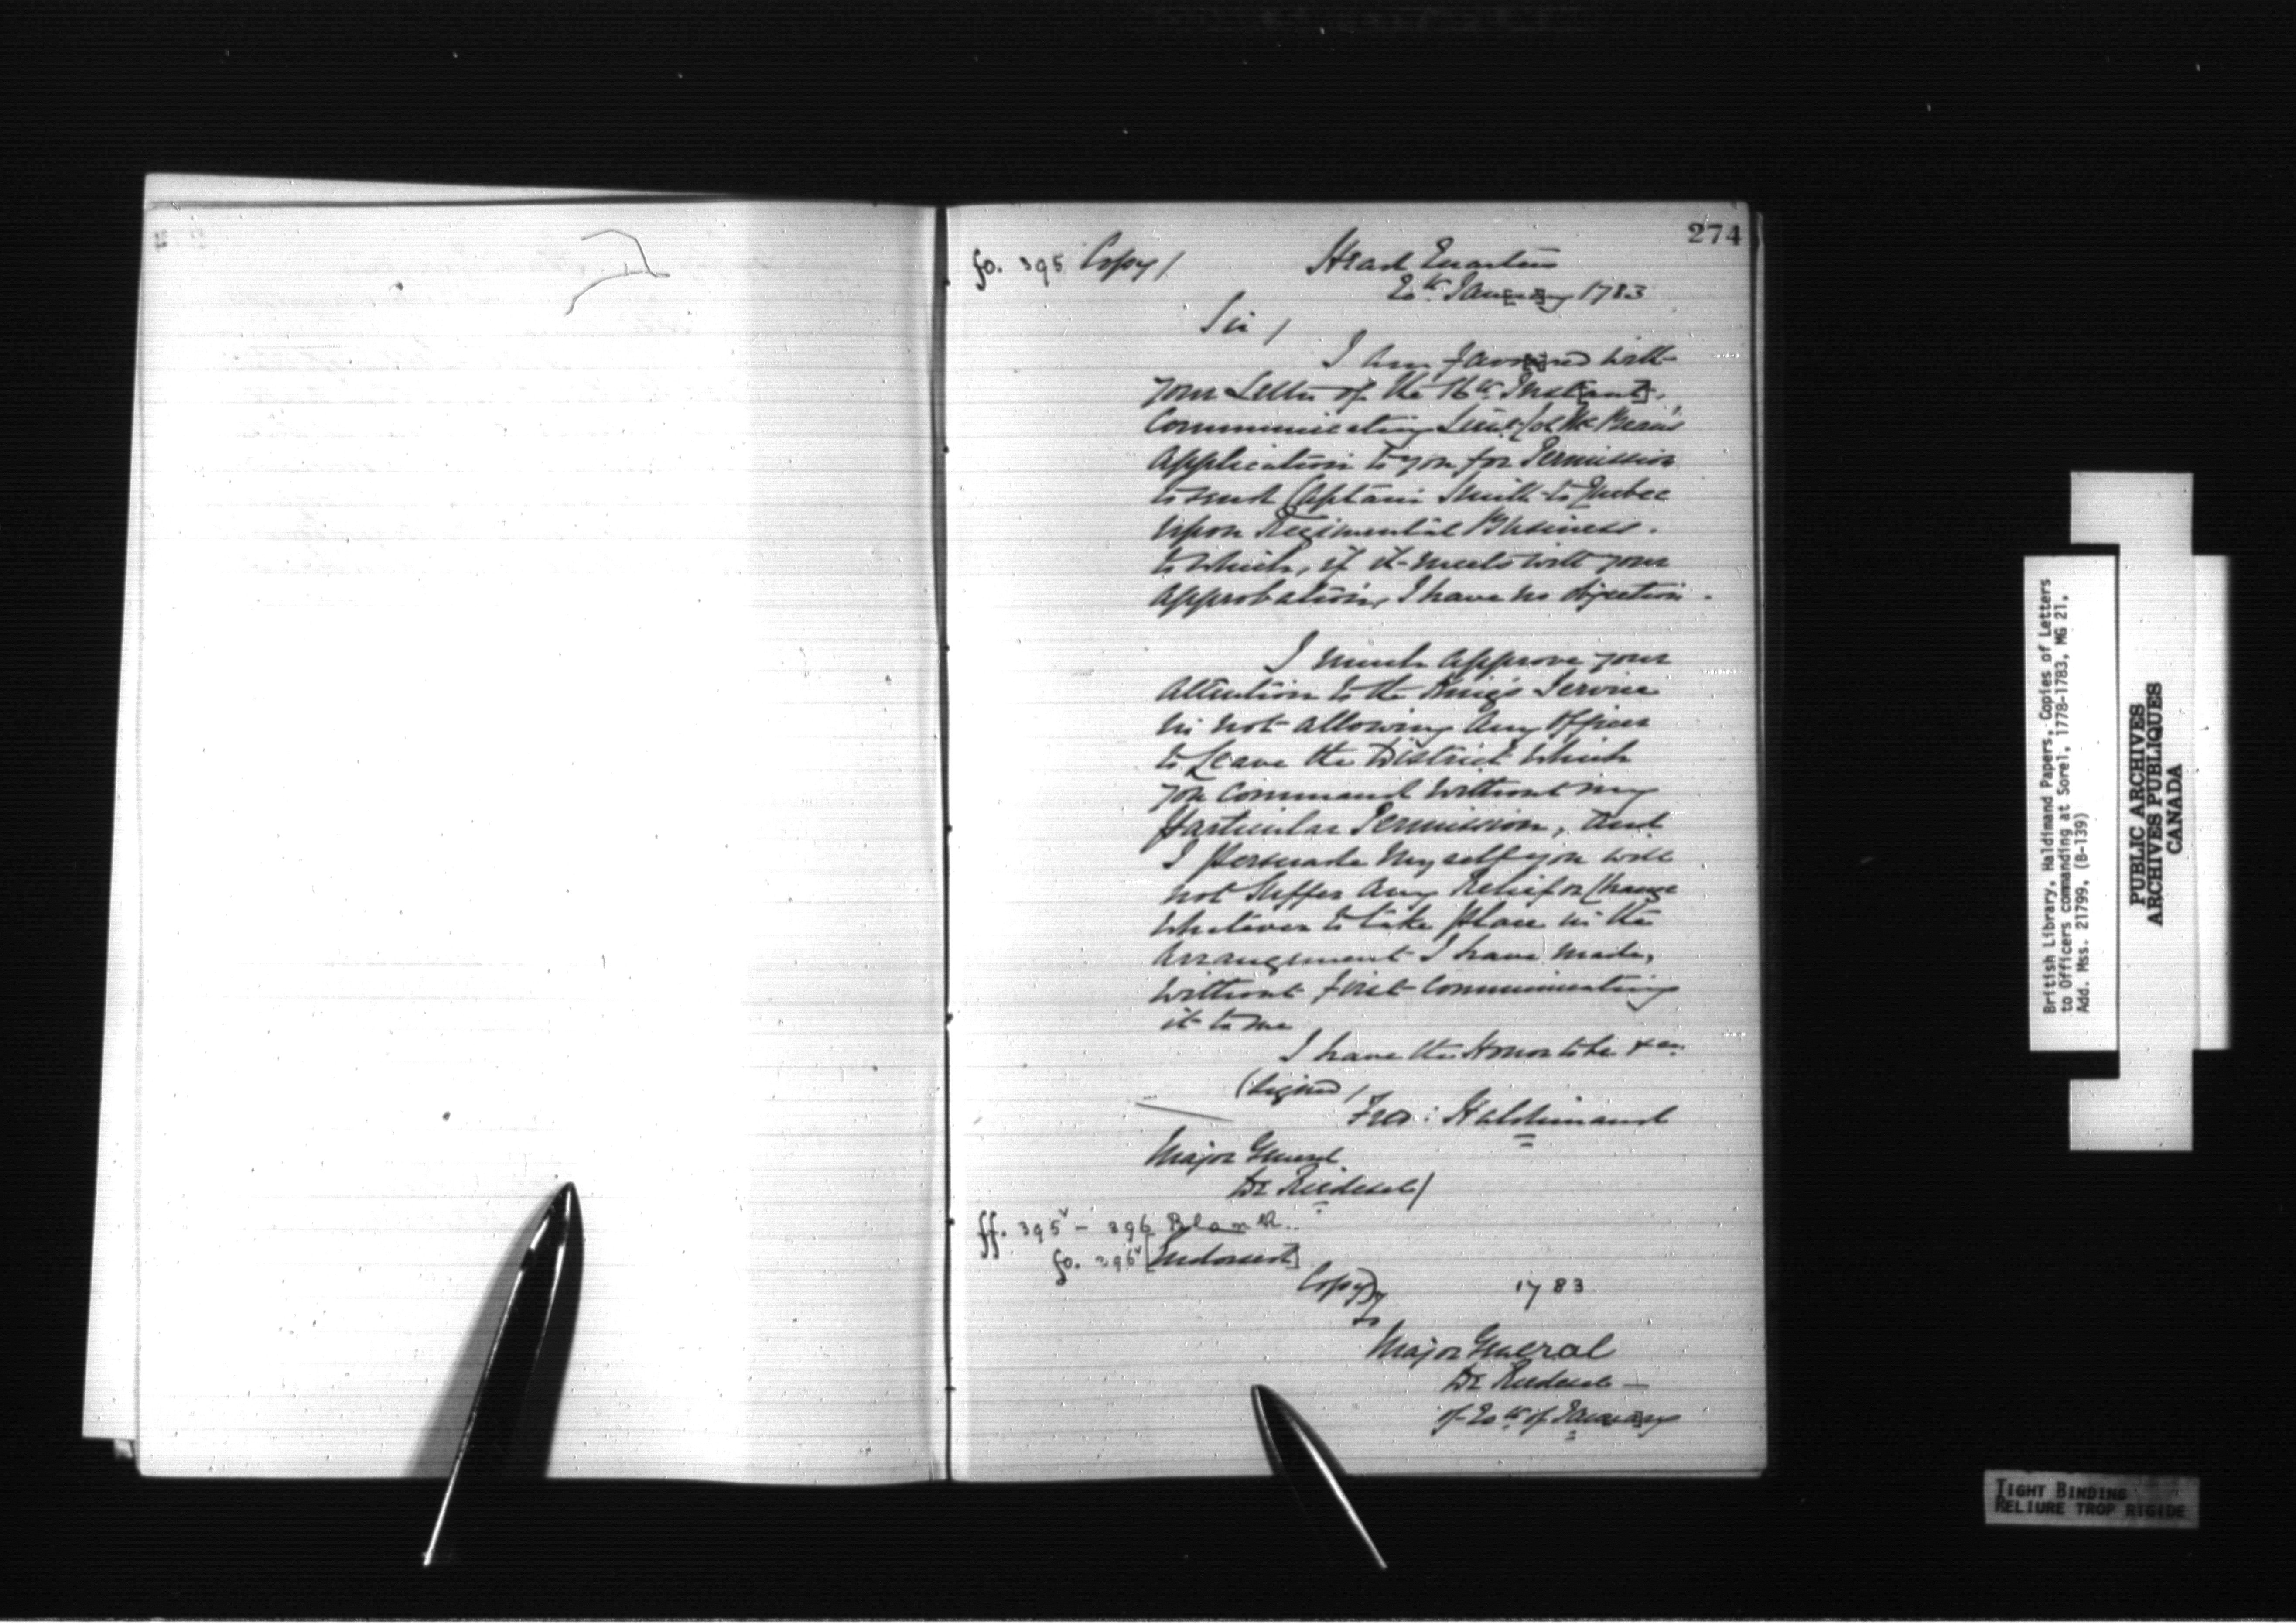 274
fo. 395 Copy/
Head Quarters
20th Jan[uar]y 1783
Sir /
I am favo[u]red with
your Letter of the 16th Inst[ant].
Communicating Lieut Col Mc Bean's
Application to you for Permission
to send Captain Smith to Quebec
upon Regimental Business.
to which, if it meets with your
approbation, I have no objection.
I much approve your
Attention to the King's Service
in not allowing any Officer
to Leave the District which
you Command without my
particular Permission, and
I persuade myself you will
not Suffer any Relief or Change
whatever to take place in the
Arrangement I have made,
without first Communicating
it to me
I have the Honor to be &ca.
(Signed /
Fred: Haldimand
Major General
De Riedesel/
ff. 395v - 396 Blank.
fo. 396v [Endorsed]
Copy
1783
to
Major General
De Riedesel —
of 20th of Jan[uar]y
British Library, Haldimand Papers, Copies of Letters
to Officers commanding at Sorel, 1778-1783, MG 21,
Add. Mss. 21799, (B-139)
PUBLIC ARCHIVES
ARCHIVES PUBLIQUES
CANADA
TIGHT BINDING
RELIURE TROP RIGIDE